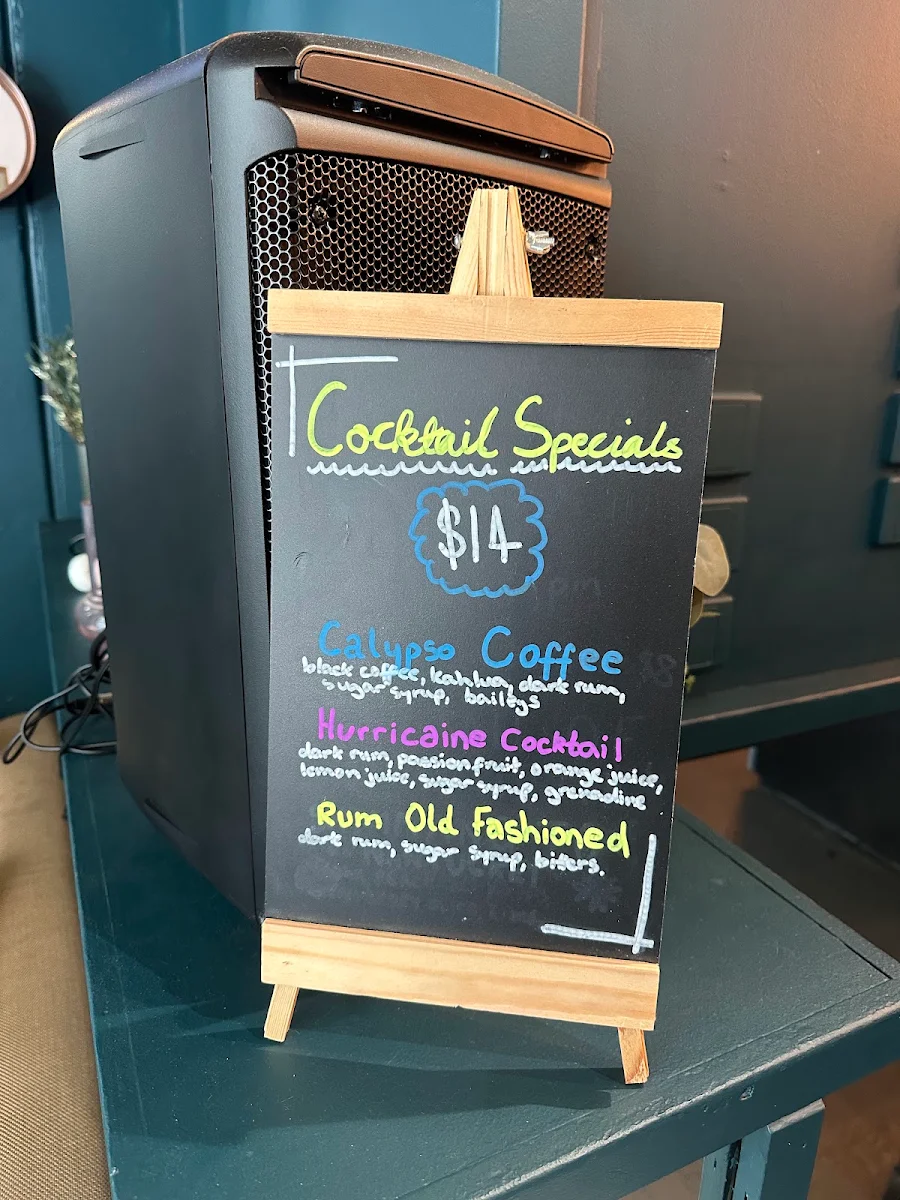 Cocktail Specials
$14
Calypso Coffee
black coffee, kahlua, dark rum,
sugar syrup, baileys
Hurricaine Cocktail
dark rum, passionfruit, orange juice,
lemon juice, sugar syrup, grenadine
Rum Old Fashioned
dark rum, sugar syrup, bitters.